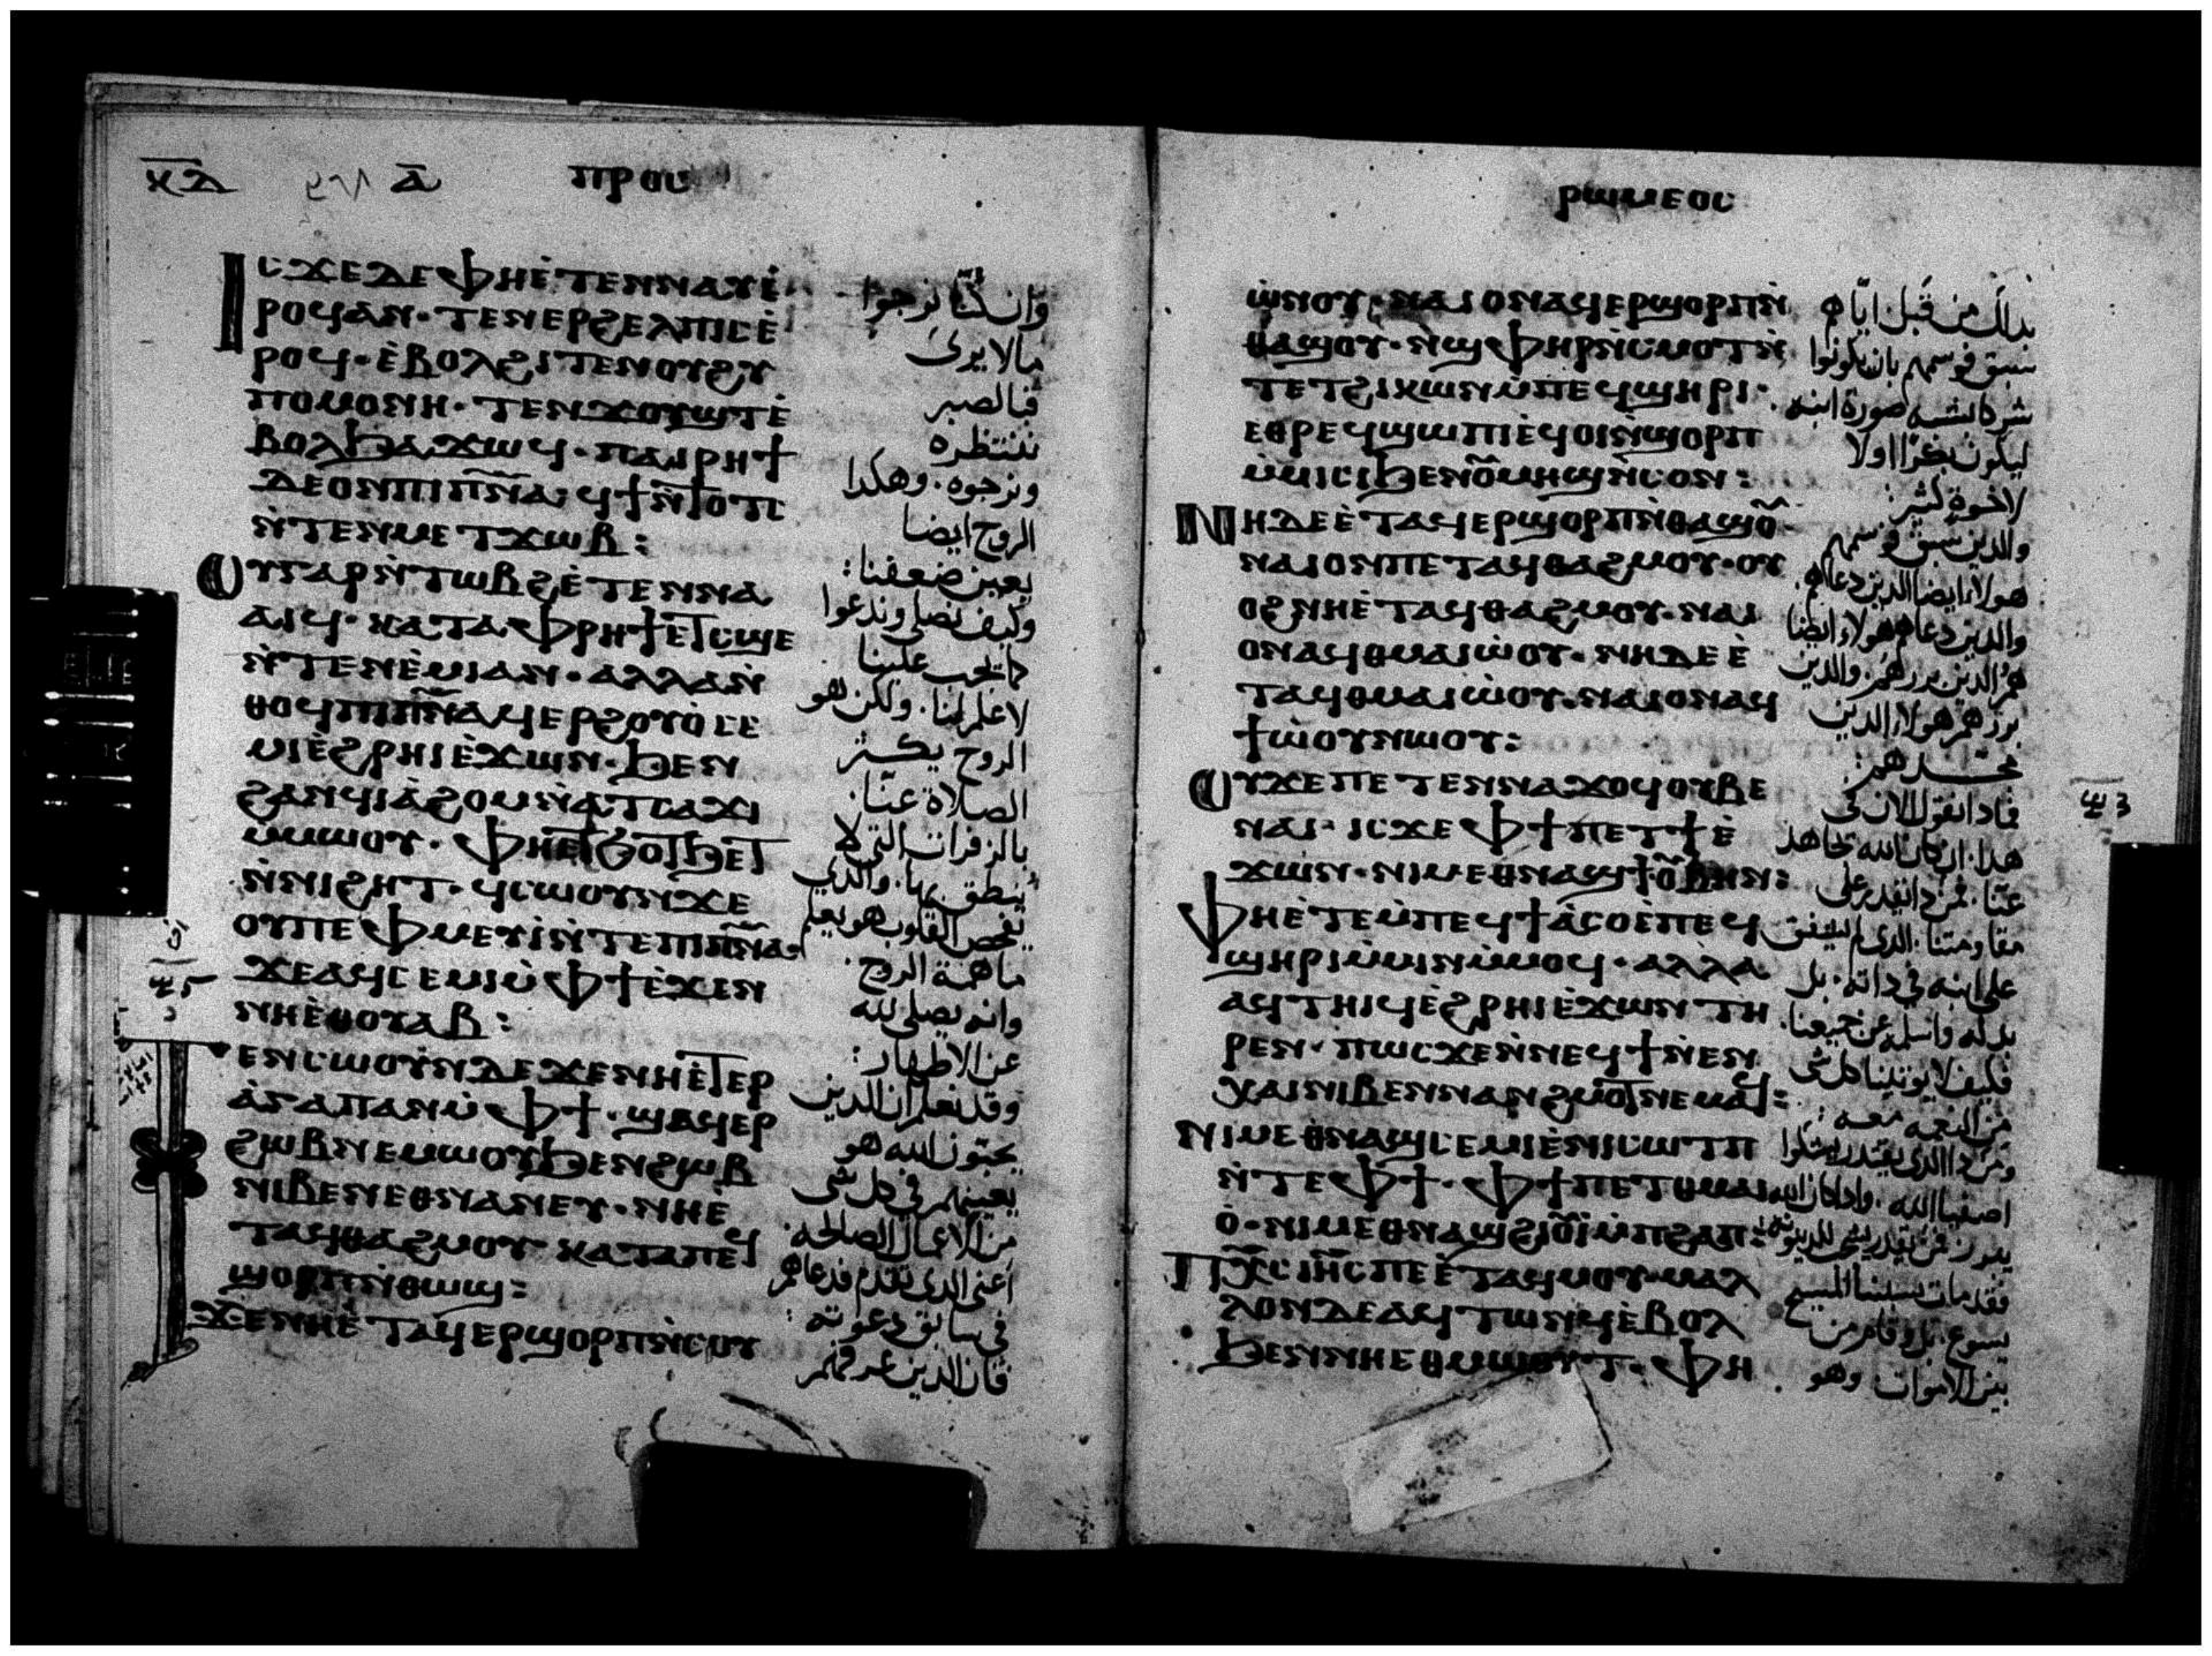 ⲕ̅ⲇ̅ ⲁ̅ ⲡⲣⲟⲥ
ⲓⲥϫⲉⲇⲉⲫⲏⲉ̀ⲧⲉⲛⲛⲁⲩⲉ̀
ⲣⲟϥⲁⲛ· ⲧⲉⲛⲉⲣϩⲉⲗⲡⲓⲥⲉ̀
ⲣⲟϥ· ⲉ̀ⲃⲟⲗϩⲓⲧⲉⲛⲟⲩϩⲩ
ⲡⲟⲙⲟⲛⲏ· ⲧⲉⲛϫⲟⲩϣⲧⲉ̀
ⲃⲟⲗϧⲁϫⲱϥ· ⲡⲁⲓⲣⲏϯ
ⲇⲉⲟⲛⲡⲓⲡ̅ⲛ̅ⲁ̅· ϥϯⲛ̀ⲧⲟⲧⲥ
ⲛ̀ⲧⲉⲛⲙⲉⲧϫⲱⲃ:
ⲟⲩⲅⲁⲣⲛ̀ⲧⲱⲃϩⲉ̀ⲧⲉⲛⲛⲁ
ⲁⲓϥ· ⲕⲁⲧⲁⲫⲣⲏϯⲉⲧⲥϣⲉ
ⲛ̀ⲧⲉⲛⲉ̀ⲙⲓⲁⲛ· ⲁⲗⲗⲁⲛ̀
ⲑⲟϥⲡⲓⲡ̅ⲛ̅ⲁ̅ϥⲉⲣϩⲟⲩⲟ̀ⲥⲉ
ⲙⲓⲉ̀ϩⲣⲏⲓⲉ̀ϫⲱⲛ· ϧⲉⲛ
ϩⲁⲛϥⲓⲁ̀ϩⲟⲙⲛ̀ⲁⲧⲥⲁϫⲓ
ⲙ̀ⲙⲱⲟⲩ· ⲫⲏⲉⲧϧⲟⲧϧⲉⲧ
ⲛ̀ⲛⲓϩⲏⲧ· ϥⲥⲱⲟⲩⲛϫⲉ
ⲟⲩⲡⲉⲫⲙⲉⲩⲓ̀ⲛ̀ⲧⲉⲡⲓⲡ̅ⲛ̅ⲁ̅·
ϫⲉⲁϥⲥⲉⲙⲓⲙ̀ⲫϯⲉ̀ϫⲉⲛ
ⲛⲏⲉ̀ⲑⲟⲩⲁⲃ:
ⲧⲉⲛⲥⲱⲟⲩⲛⲇⲉϫⲉⲛⲏⲉ̀ⲧⲉⲣ
ⲁ̀ⲅⲁⲡⲁⲛⲙ̀ⲫϯ· ϣⲁϥⲉⲣ
ϩⲱⲃⲛⲉⲙⲱⲟⲩϧⲉⲛϩⲱⲃ
ⲛⲓⲃⲉⲛⲉⲑⲛⲁⲛⲉⲩ· ⲛⲏⲉ̀
ⲧⲁϥⲑⲁϩⲙⲟⲩ ⲕⲁⲧⲁⲡⲉϥ
ϣⲟⲣⲡⲛ̀ⲑⲱϣ:
ϫⲉⲛⲏⲉ̀ⲧⲁϥⲉⲣϣⲟⲣⲡⲛ̀ⲥⲟⲩ
وان كنّا نرجوا
مالا يرى
فبالصبر
ننتظره
ونرجوه· وهكذا
الروح ايضا
يعين ضعفنا:
وكيف نصلي وندعوا
كما يجب علينا
لا علم لنا· ولكن هو
الروح يكثر
الصلاة عنّا·
بالزفرات التي لا
ينطق بها· والذي
يفحص القلوب هو يعلم
ما همة الروح·
وانه يصلي لله
عن الاطهار:
وقد نعلم ان الذين
يحبّون الله هو
يعينهم في كل شي
من الاعمال الصالحه·
اعني الذى تقدم فدعاهم
في سابق دعوته:
فان الذين عرفهم
ⲣⲱⲙⲉⲟⲥ
ⲱ̀ⲛⲟⲩ· ⲛⲁⲓⲟⲛⲁϥⲉⲣϣⲟⲣⲡⲛ̀
ⲑⲁϣⲟⲩ· ⲛϣⲫⲏⲣⲛ̀ⲥⲙⲟⲧⲛ̀
ⲧⲉⲧϩⲓⲕⲱⲛⲙ̀ⲡⲉϥϣⲏⲣⲓ·
ⲉⲑⲣⲉϥϣⲱⲡⲓⲉϥⲟⲓⲛ̀ϣⲟⲣⲡ
ⲙ̀ⲙⲓⲥⲓϧⲉⲛⲟⲩⲙⲏϣⲛ̀ⲥⲟⲛ:
ⲛⲏⲇⲉⲉ̀ⲧⲁϥⲉⲣϣⲟⲣⲡⲛ̀ⲑⲁϣⲟⲩ
ⲛⲁⲓⲟⲛⲡⲉⲧⲁϥⲑⲁϩⲙⲟⲩ· ⲟⲩ
ⲟϩⲛⲏⲉ̀ⲧⲁϥⲑⲁϩⲙⲟⲩ· ⲛⲁⲓ
ⲟⲛⲁϥⲑⲙⲁⲓⲱ̀ⲟⲩ· ⲛⲏⲇⲉⲉ̀
ⲧⲁϥⲑⲙⲁⲓⲱ̀ⲟⲩ· ⲛⲁⲓⲟⲛⲁϥ
ϯⲱ̀ⲟⲩⲛⲱⲟⲩ:
ⲟⲩϫⲉⲡⲉⲧⲉⲛⲛⲁϫⲟϥⲟⲩⲃⲉ
ⲛⲁⲓ· ⲓⲥϫⲉⲫϯⲡⲉⲧϯⲉ̀
ϫⲱⲛ· ⲛⲓⲙⲉⲑⲛⲁϣϯⲟⲩⲃⲏⲛ:
ⲫⲏⲉ̀ⲧⲉⲙ̀ⲡⲉϥϯⲁ̀ⲥⲟⲉ̀ⲡⲉϥ
ϣⲏⲣⲓⲙ̀ⲙⲓⲛⲙ̀ⲙⲟϥ· ⲁⲗⲗⲁ
ⲁϥⲧⲏⲓϥⲉ̀ϩⲣⲏⲓⲉ̀ϫⲱⲛⲧⲏ
ⲣⲉⲛ· ⲡⲱⲥϫⲉⲛ̀ⲛⲉϥϯⲛ̀ⲉⲛ
ⲭⲁⲓⲛⲓⲃⲉⲛⲛⲁⲛϩⲙⲟⲧⲛⲉⲙⲁϥ:
ⲛⲓⲙⲉⲑⲛⲁϣⲥⲉⲙⲓⲉ̀ⲛⲓⲥⲱⲧⲡ
ⲛ̀ⲧⲉⲫϯ· ⲫϯⲡⲉⲧⲑⲙⲁⲓ
ⲟ̀· ⲛⲓⲙⲉⲑⲛⲁϣϩⲓⲟⲩⲓ̀ⲙ̀ⲡϩⲁⲡ:
ⲡⲭ̅ⲥ̅ⲓⲏ̅ⲥ̅ⲡⲉⲉ̀ⲧⲁϥⲙⲟⲩ· ⲙⲁⲗ
ⲗⲟⲛⲇⲉⲁϥⲧⲱⲛϥⲉ̀ⲃⲟⲗ
ϧⲉⲛⲛⲏⲉⲑⲙⲱⲟⲩⲧ· ⲫⲏ
بذلك من قبل ايّاهم
سبق فوسمهم بان يكونوا
شركا شبه صورة ابنه
ليكون بكرًا اولا
لاخوة كثير:
والذين سبق فوسمهم
هولاء ايضا الذين دعاهم·
والذين دعاهم هولاء ايضا
هم الذين بررهم· والذين
بررهم هولاء الذين
مجّدهم:
فماذا نقول الان في
هذا· ان كان الله يجاهد
عنّا· فمن ذا يقدر على
مقاومتنا· الذى لم يشفق
على ابنه في ذاته· بل
بذله واسلمه عن جميعنا·
فكيف لا يوتينا كل شي
من النعمه معه:
ومن ذا الذى يقدر يشكوا
اصفيا الله· واذا كان الله
يبرر فمن يقدر يلقي للدينونة:
فقد مات سيدنا المسيح
يسوع· بل وقام من
بين الاموات وهو